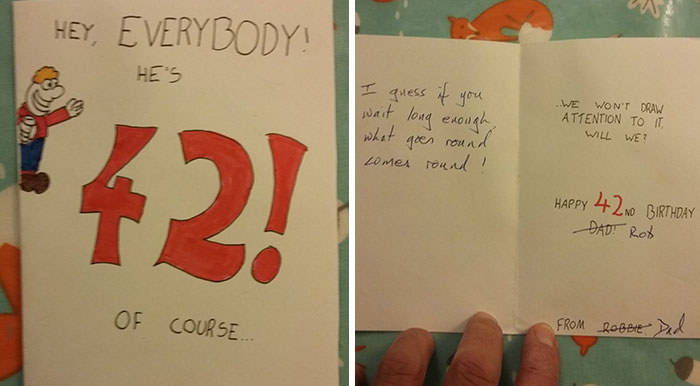 HEY, EVERYBODY!
HE'S
42!
OF COURSE...
I guess if you
wait long enough
"what goes round
comes round!
..WE WON'T DRAW
ATTENTION TO IT,
WILL WE?
HAPPY 42ND BIRTHDAY
DAD! Rob
FROM ROBBIE Dad